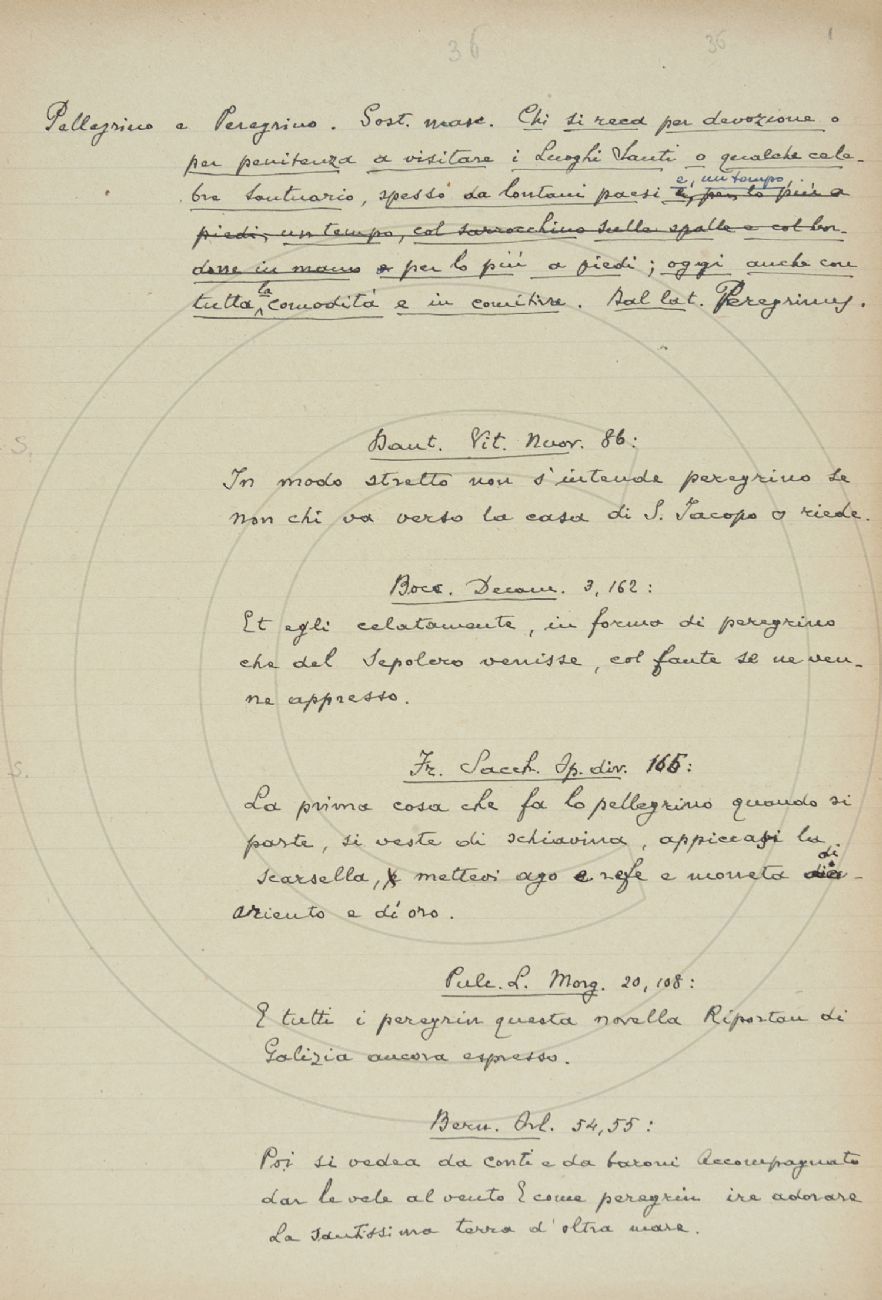 36 36 1
Pellegrino e Peregrino. Sost. masc. Chi si reca per devozione o
per penitenza a visitare i Luoghi Santi o qualche cele-
bre Santuario, spesso da lontani paesi e, un tempo, e, per lo più a
piedi, un tempo, col sarrocchino sulle spalle e col bor-
done in mano e per lo più a piedi; oggi anche con
tutta la comodità e in comitiva. Dal lat. Peregrinus.
S.
Dant. Vit. Nuov. 86:
In modo stretto non s'intende peregrino se
non chi va verso la casa di S. Jacopo o riede.
Bocc. Decam. 3, 162:
Et egli celatamente, in forma di peregrino
che dal Sepolcro venisse, col fante se ne ven-
ne appresso.
S.
Fr. Sacch. Op. div. 166:
La prima cosa che fa lo pellegrino quando si
parte, si veste di schiavina, appiccasi la
scarsella, e mettevi ago e refe e moneta di
ariento e di oro.
Pulc. L. Morg. 20, 108:
E tutti i peregrin questa novella Riportan di
Galizia ancora espresso.
Bern. Orl. 54, 55:
Poi si vedea da conti e da baroni Accompagnato
dar le vele al vento E come peregrin ire adorare
La santissima terra d'oltra mare.